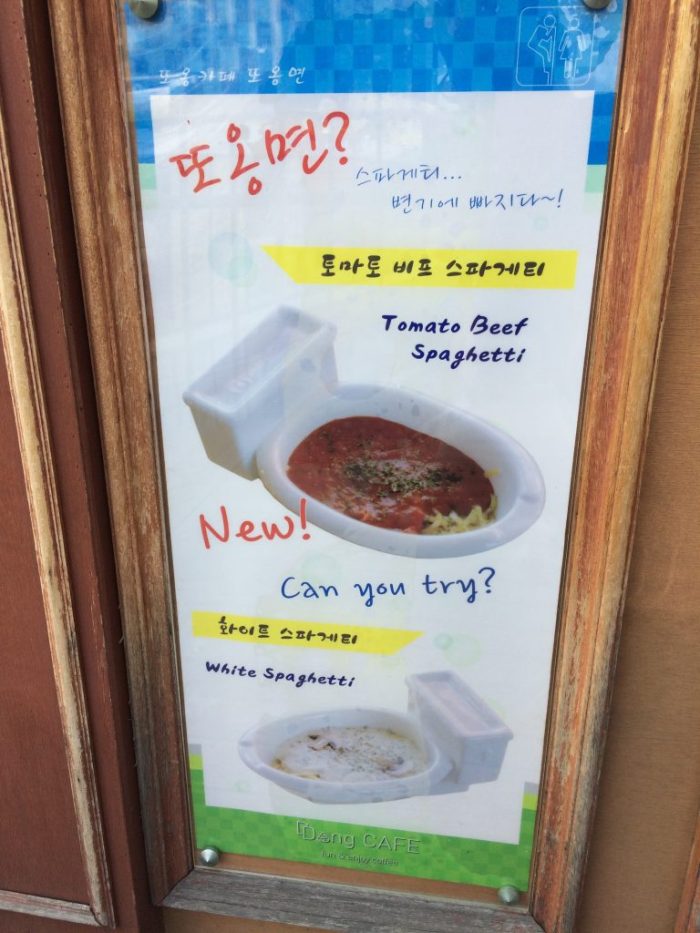 또옹카페 또옹면
또옹면?
스파게티...
변기에 빠지다~!
토마토 비프 스파게티
Tomato Beef
Spaghetti
New!
Can you try?
화이트 스파게티
White Spaghetti
DDong CAFE
fun & enjoy coffee